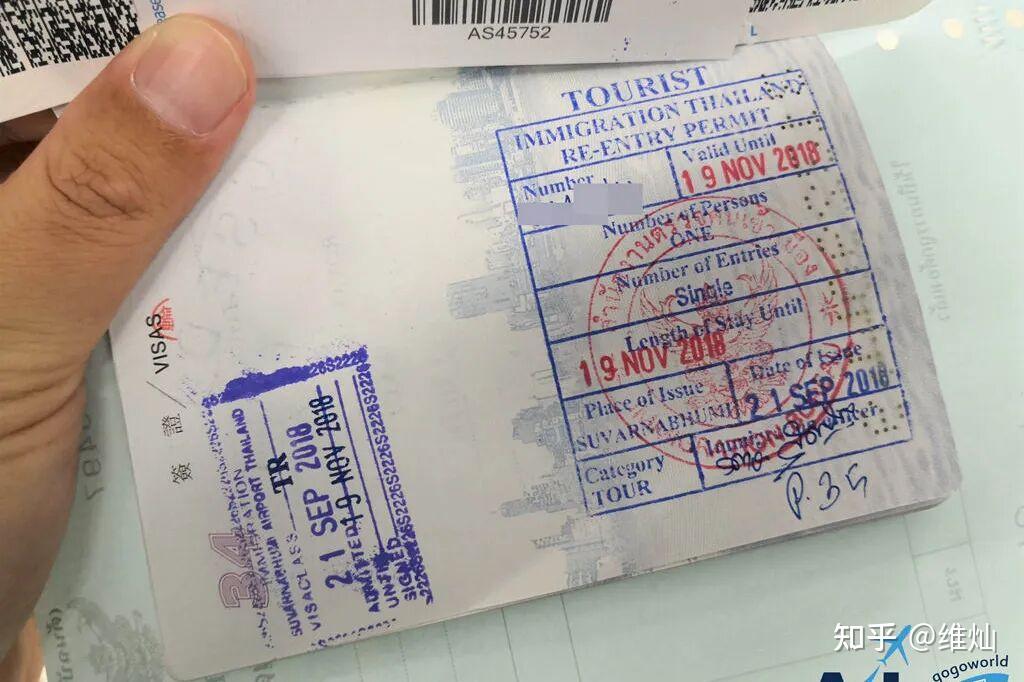 AS45752
TOURIST
IMMIGRATION THAILAND
RE-ENTRY PERMIT
Number
Valid Until
19 NOV 2018
Number of Persons
ONE
Number of Entries
Single
Length of Stay Until
19 NOV 2018
Place of Issue
Date of Issue
SUVARNABHUMI
21 SEP 2018
Category
TOUR
P.35
簽證 / VISAS
34
SUVARNABHUMI AIRPORT THAILAND
VISA CLASS TR
21 SEP 2018
ADMITTED 19 NOV 2018
UNTIL
SIGNED
知乎 @维灿
gogoworld